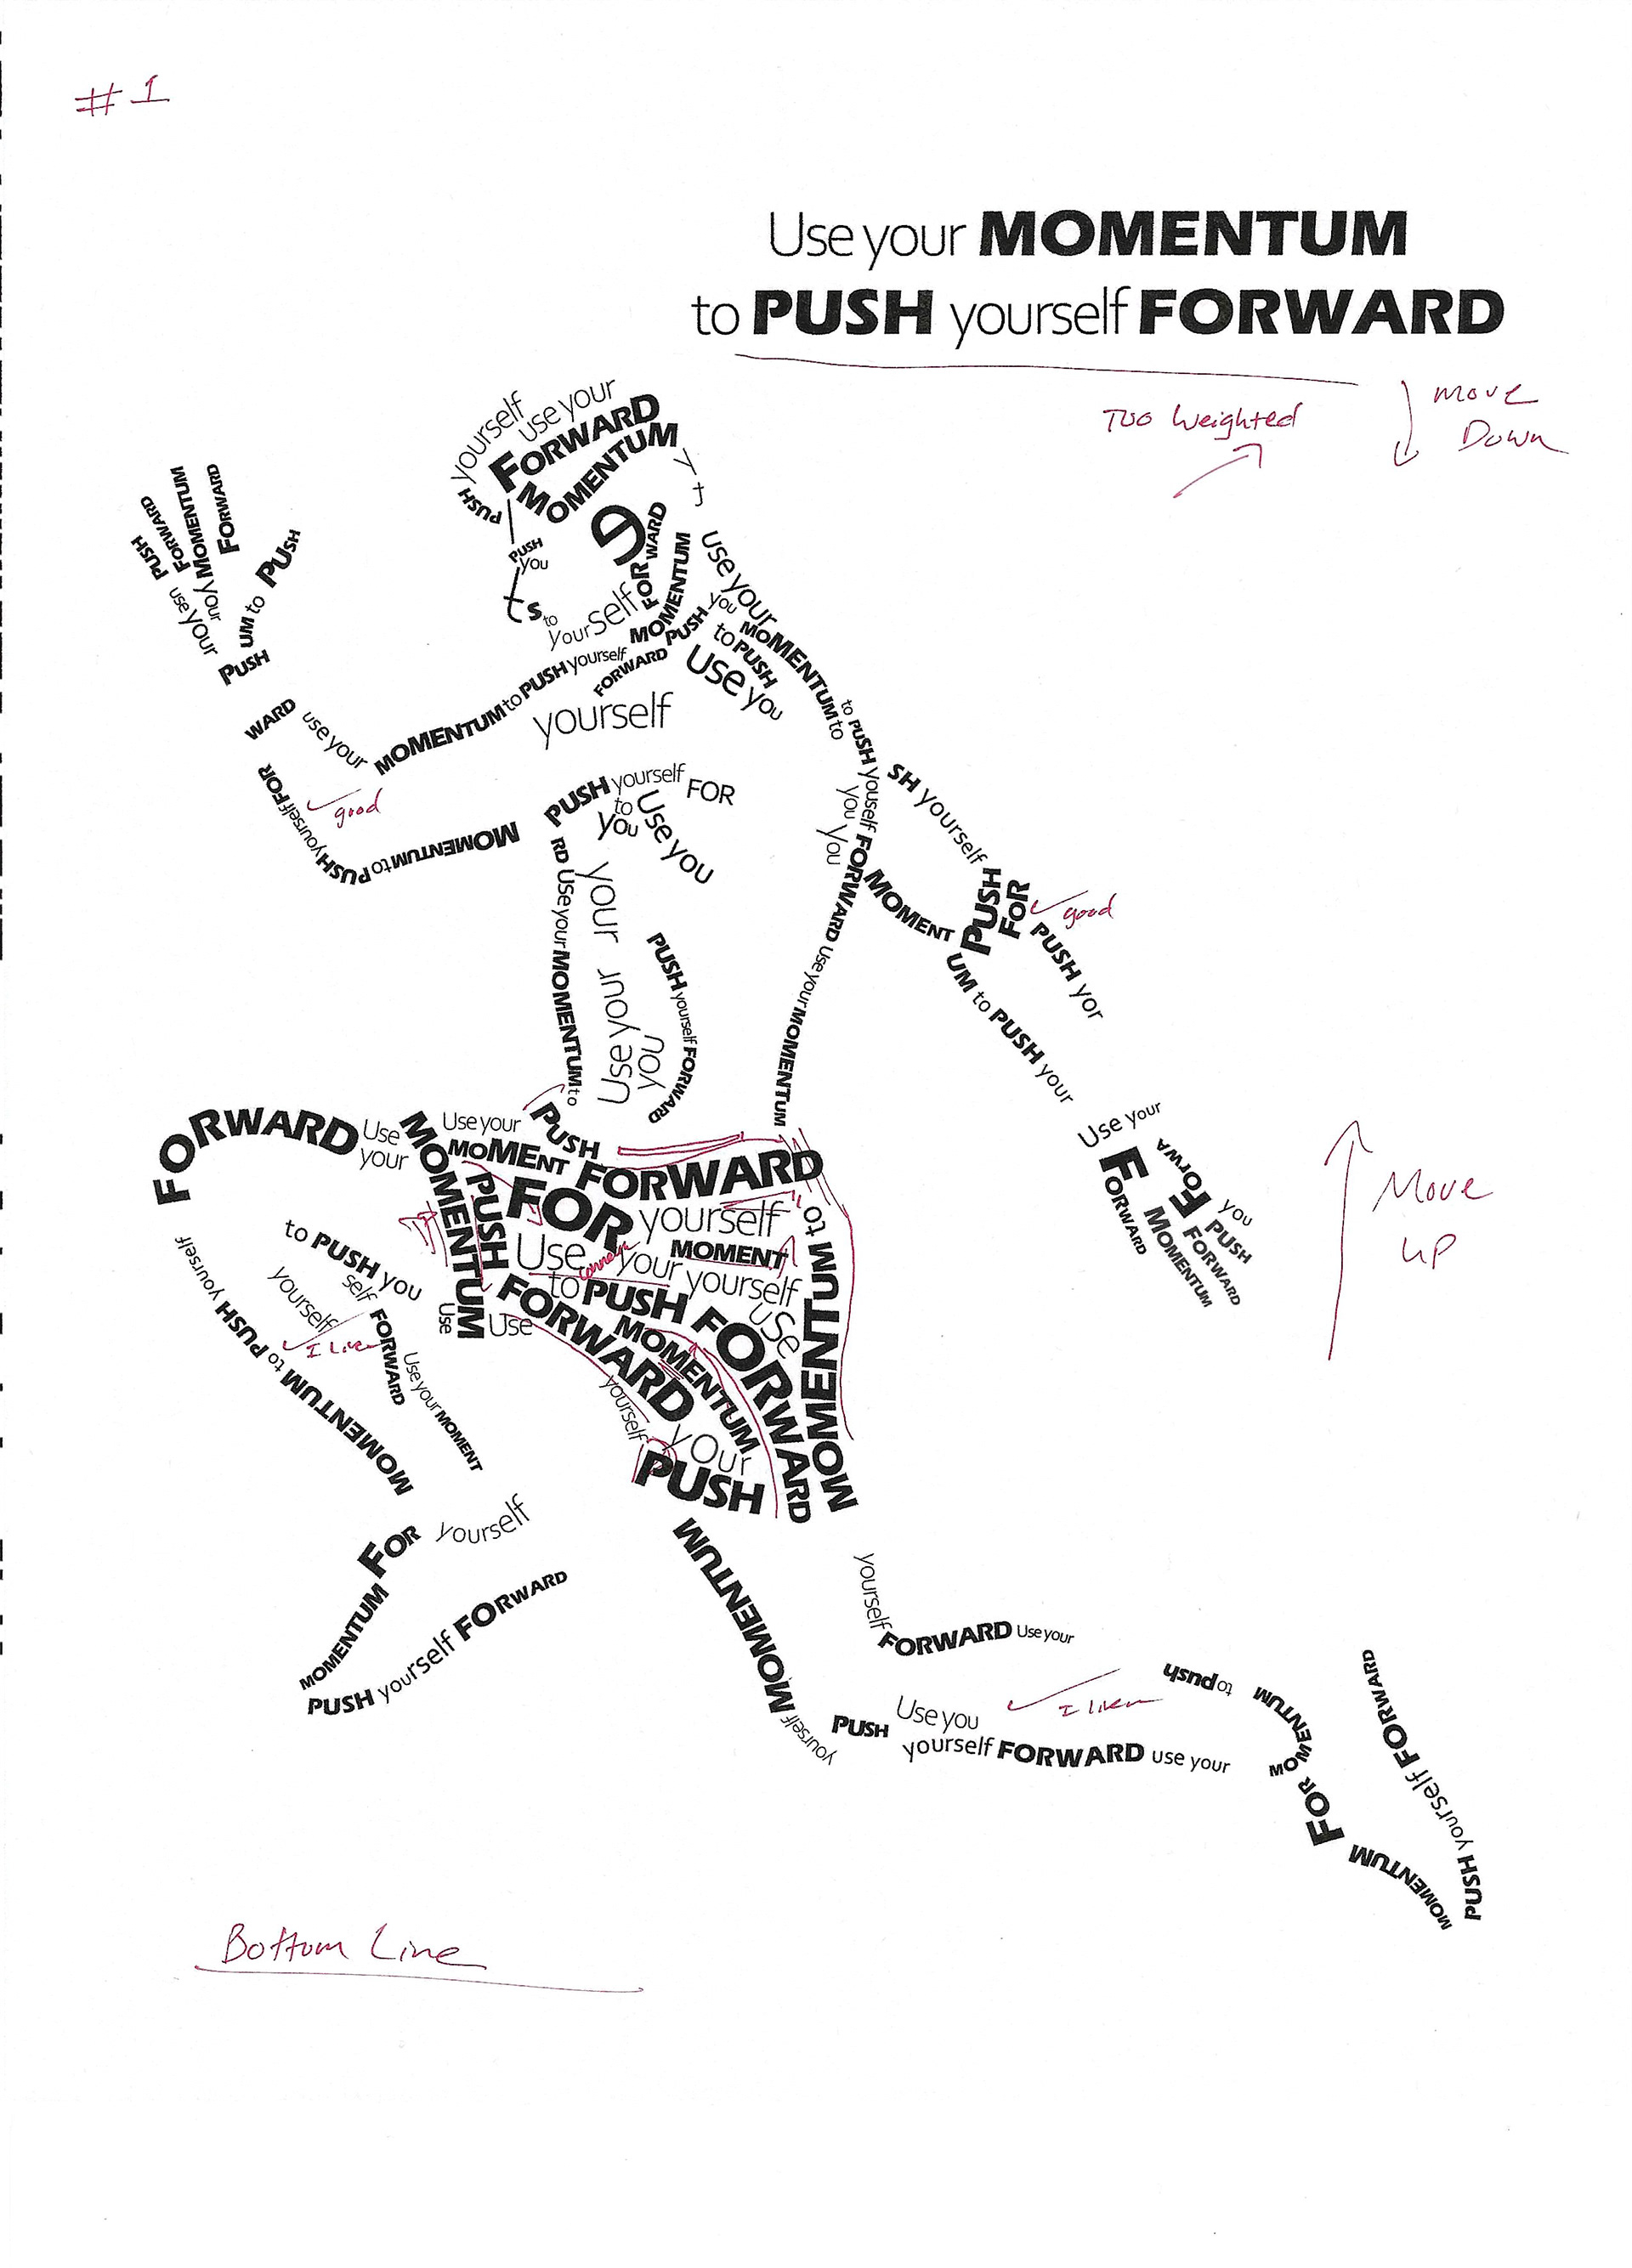 #1
Use your MOMENTUM
to PUSH yourself FORWARD
Too Weighted
Move
Down
yourself
use your
FORWARD
MOMENTUM
PUSH
y
t
e
FORWARD
MOMENTUM
PUSH
you
ts
to
yourself
PUSH FORWARD
FORWARD MOMENTUM
FORWARD
use your
your
UM to PUSH
PUSH
WARD
use your
MOMENTUM to PUSH yourself
FORWARD
PUSH
you
to PUSH
Use you
use your
MOMENTUM to
yourself
FOR
PUSH yourself
MOMENTUM to
good
PUSH yourself FOR
to
you
Use you
to PUSH youself FORWARD Use your MOMENTUM
you
you
SH yourself
PUSH
FOR
good
MOMENT
PUSH yor
UM to PUSH your
RD Use your MOMENTUM to
your
Use your
you
PUSH yourself FORWARD
Use your
FORWARD
FORWA
you
PUSH
FORWARD
MOMENTUM
F
Move
up
FORWARD
Use
your
MOMENTUM
Use your
PUSH
MOMENT
FORWARD
PUSH
FOR
yourself
Use
your
MOMENT
yourself
to PUSH
FORWARD
use
MOMENTUM to
Use
Use
FORWARD
MOMENTUM
yourself
your
PUSH
MOMENTUM to PUSH yourself
to PUSH you
self
yourself
FORWARD
Use your MOMENT
FOR
yourself
MOMENTUM
PUSH yourself FORWARD
MOMENTUM
yourself
yourself
FORWARD Use your
PUSH
Use you
yourself FORWARD use your
to push
MOMENTUM
FOR
MOMENTUM
PUSH yourself FORWARD
Bottom Line